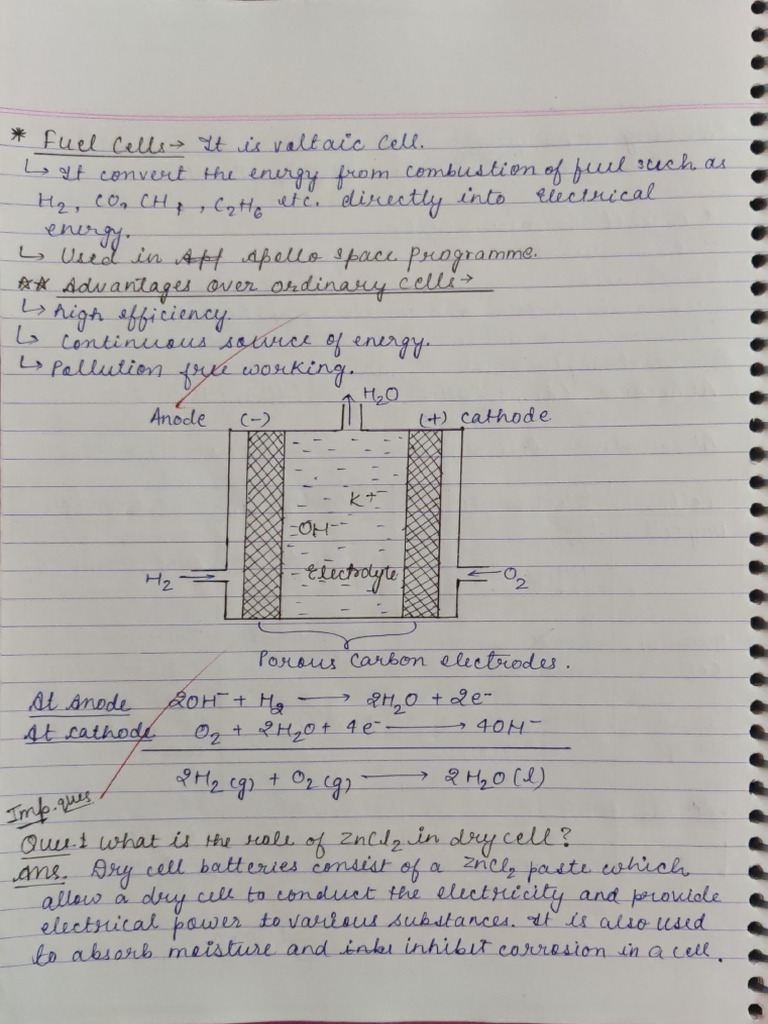 * Fuel Cells → It is voltaic cell.
↳ It convert the energy from combustion of fuel such as
H₂, CO, CH₄, C₂H₆ etc. directly into electrical
energy.
↳ Used in Apollo space programme.
** Advantages over ordinary cells →
↳ high efficiency.
↳ Continuous source of energy.
↳ Pollution free working.
H₂O
Anode (-) (+) cathode
K⁺
OH⁻
Electrolyte
H₂ → ← O₂
Porous carbon electrodes.
At Anode 2OH⁻ + H₂ → 2H₂O + 2e⁻
At cathode O₂ + 2H₂O + 4e⁻ → 4OH⁻
2H₂(g) + O₂(g) → 2H₂O(l)
Imp. ques
Ques.1 what is the role of ZnCl₂ in dry cell?
Ans. Dry cell batteries consist of a ZnCl₂ paste which
allow a dry cell to conduct the electricity and provide
electrical power to various substances. It is also used
to absorb moisture and inhibit corrosion in a cell.